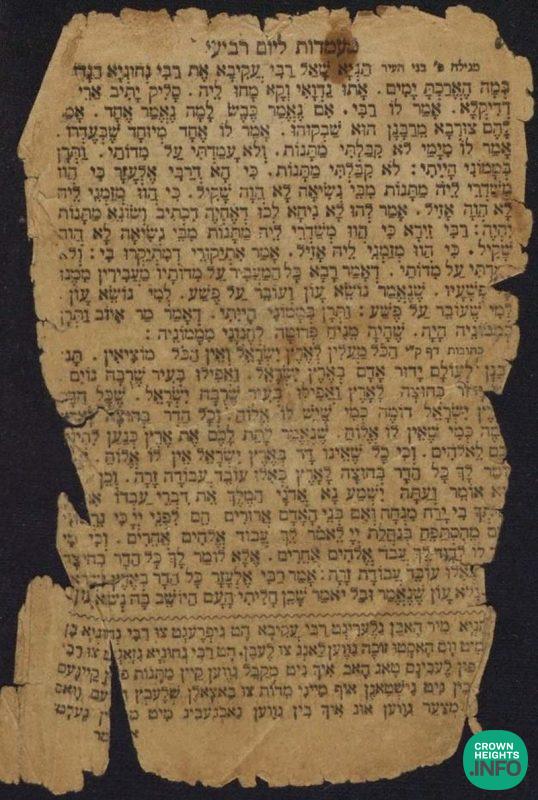 מעמדות ליום רביעי
מגילה פ' בני העיר תַּנְיָא שָׁאַל רַבִּי עֲקִיבָא אֶת רַבִּי נְחוּנְיָא
בַּמָּה הֶאֱרַכְתָּ יָמִים. אֲתוּ גַּוָּאזֵי וְקָא מָחוּ לֵיהּ. סָלֵיק יָתֵיב אַרֵישָׁא
דְדִיקְלָא. אָמַר לוֹ רַבִּי. אִם נֶאֱמַר כֶּבֶשׂ לָמָּה נֶאֱמַר אֶחָד. אָמַר
לָהֶם צוּרְבָא מֵרַבָּנָן הוּא שִׁבְקוּהוּ. אָמַר לוֹ אֶחָד מְיוּחָד שֶׁבְּעֶדְרוֹ.
אָמַר לוֹ מִיָּמַי לֹא קִבַּלְתִּי מַתָּנוֹת. וְלֹא עָמַדְתִּי עַל מִדּוֹתַי. וַתְּרָן
בְּמָמוֹנִי הָיִיתִי: לֹא קִבַּלְתִּי מַתָּנוֹת. כִּי הָא דְּרַבִּי אֶלְעָזָר כִּי הֲווּ
מְשַׁדְּרֵי לֵיהּ מַתָּנוֹת מִבֵּי נְשִׂיאָה לָא הֲוָה שָׁקֵיל. כִּי הֲווּ מְזַמְּנֵי לֵיהּ
לָא הֲוָה אָזֵיל. אָמַר לְהוּ לָא נִיחָא לְכוּ דְּאֶחְיֶה דִּכְתִיב וְשׂוֹנֵא מַתָּנוֹת
יִחְיֶה: רַבִּי זֵירָא כִּי הֲווּ מְשַׁדְּרֵי לֵיהּ מַתָּנוֹת מִבֵּי נְשִׂיאָה לָא הֲוָה
שָׁקֵיל. כִּי הֲווּ מְזַמְּנֵי לֵיהּ אָזֵיל. אָמַר אִתְיַקּוּרֵי דְּמִתְיַקְּרוּ בִּי: וְלֹא
עָמַדְתִּי עַל מִדּוֹתַי. דְּאָמַר רָבָא כָּל הַמַּעֲבִיר עַל מִדּוֹתָיו מַעֲבִירִין מִמֶּנּוּ
פְּשָׁעָיו. שֶׁנֶּאֱמַר נוֹשֵׂא עָוֹן וְעוֹבֵר עַל פֶּשַׁע. לְמִי נוֹשֵׂא עָוֹן.
לְמִי שֶׁעוֹבֵר עַל פֶּשַׁע: וַתְּרָן בְּמָמוֹנִי הָיִיתִי. דְּאָמַר מַר אִיּוֹב וַתְּרָן
בְּמָמוֹנֵיהּ הָיָה. שֶׁהָיָה מַנִּיחַ פְּרוּטָה לְחֶנְוָנִי מִמָּמוֹנֵיהּ:
כתובות דף ק"י הַכֹּל מַעֲלִין לְאֶרֶץ יִשְׂרָאֵל וְאֵין הַכֹּל מוֹצִיאִין. תָּנוּ
רַבָּנָן לְעוֹלָם יָדוּר אָדָם בְּאֶרֶץ יִשְׂרָאֵל. וַאֲפִילּוּ בְּעִיר שֶׁרֻבָּהּ גּוֹיִם
בְּחוּצָה לָאָרֶץ וַאֲפִילּוּ בְּעִיר שֶׁרֻבָּהּ יִשְׂרָאֵל. שֶׁכָּל הַדָּר
יִשְׂרָאֵל דּוֹמֶה כְּמִי שֶׁיֵּשׁ לוֹ אֱלוֹהַּ. וְכָל הַדָּר בְּחוּצָה
כְּמִי שֶׁאֵין לוֹ אֱלוֹהַּ. שֶׁנֶּאֱמַר לָתֵת לָכֶם אֶת אֶרֶץ כְּנַעַן לִהְיוֹת
לָכֶם לֵאלֹהִים. וְכִי כָּל שֶׁאֵינוֹ דָּר בְּאֶרֶץ יִשְׂרָאֵל אֵין לוֹ אֱלוֹהַּ
לְךָ כָּל הַדָּר בְּחוּצָה לָאָרֶץ כְּאִלּוּ עוֹבֵד עֲבוֹדָה זָרָה. וְכֵן
אוֹמֵר וְעַתָּה יִשְׁמַע נָא אֲדֹנִי הַמֶּלֶךְ אֵת דִּבְרֵי עַבְדּוֹ
בִי יָרַח מִנְחָה וְאִם בְּנֵי הָאָדָם אֲרוּרִים הֵם לִפְנֵי יְיָ כִּי
מֵהִסְתַּפֵּחַ בְּנַחֲלַת יְיָ לֵאמֹר לֵךְ עֲבוֹד אֱלֹהִים אֲחֵרִים. וְכִי מִי
לוֹ לְדָוִד לֵךְ עֲבֹד אֱלֹהִים אֲחֵרִים. אֶלָּא לוֹמַר לְךָ כָּל הַדָּר בְּחוּצָה
כְּאִלּוּ עוֹבֵד עֲבוֹדָה זָרָה: אָמַר רַבִּי אֶלְעָזָר כָּל הַדָּר בְּאֶרֶץ
בְּלֹא עָוֹן שֶׁנֶּאֱמַר וּבַל יֹאמַר שָׁכֵן חָלִיתִי הָעָם הַיּוֹשֵׁב בָּהּ נְשֻׂא עָוֹן
תַּנְיָא מיר האבן גלערינט רבי עקיבא האט גיפרעגט צו רבי נחוניא בן
מיט וואס האסטו זוכה גווען לאנג צו לעבן. האט רבי נחוניא גזאגט צו רבי
מיין לעבינס טאג האב איך ניט מקבל גווען קיין מתנות פון קיינעם
בין ניט גישטאנין אויף מייני מדות צו באצאלן שלעכץ וואס
מצער גווען און איך בין גווען נאכגעביג מיט מיין געלט:
CROWN
HEIGHTS
.INFO